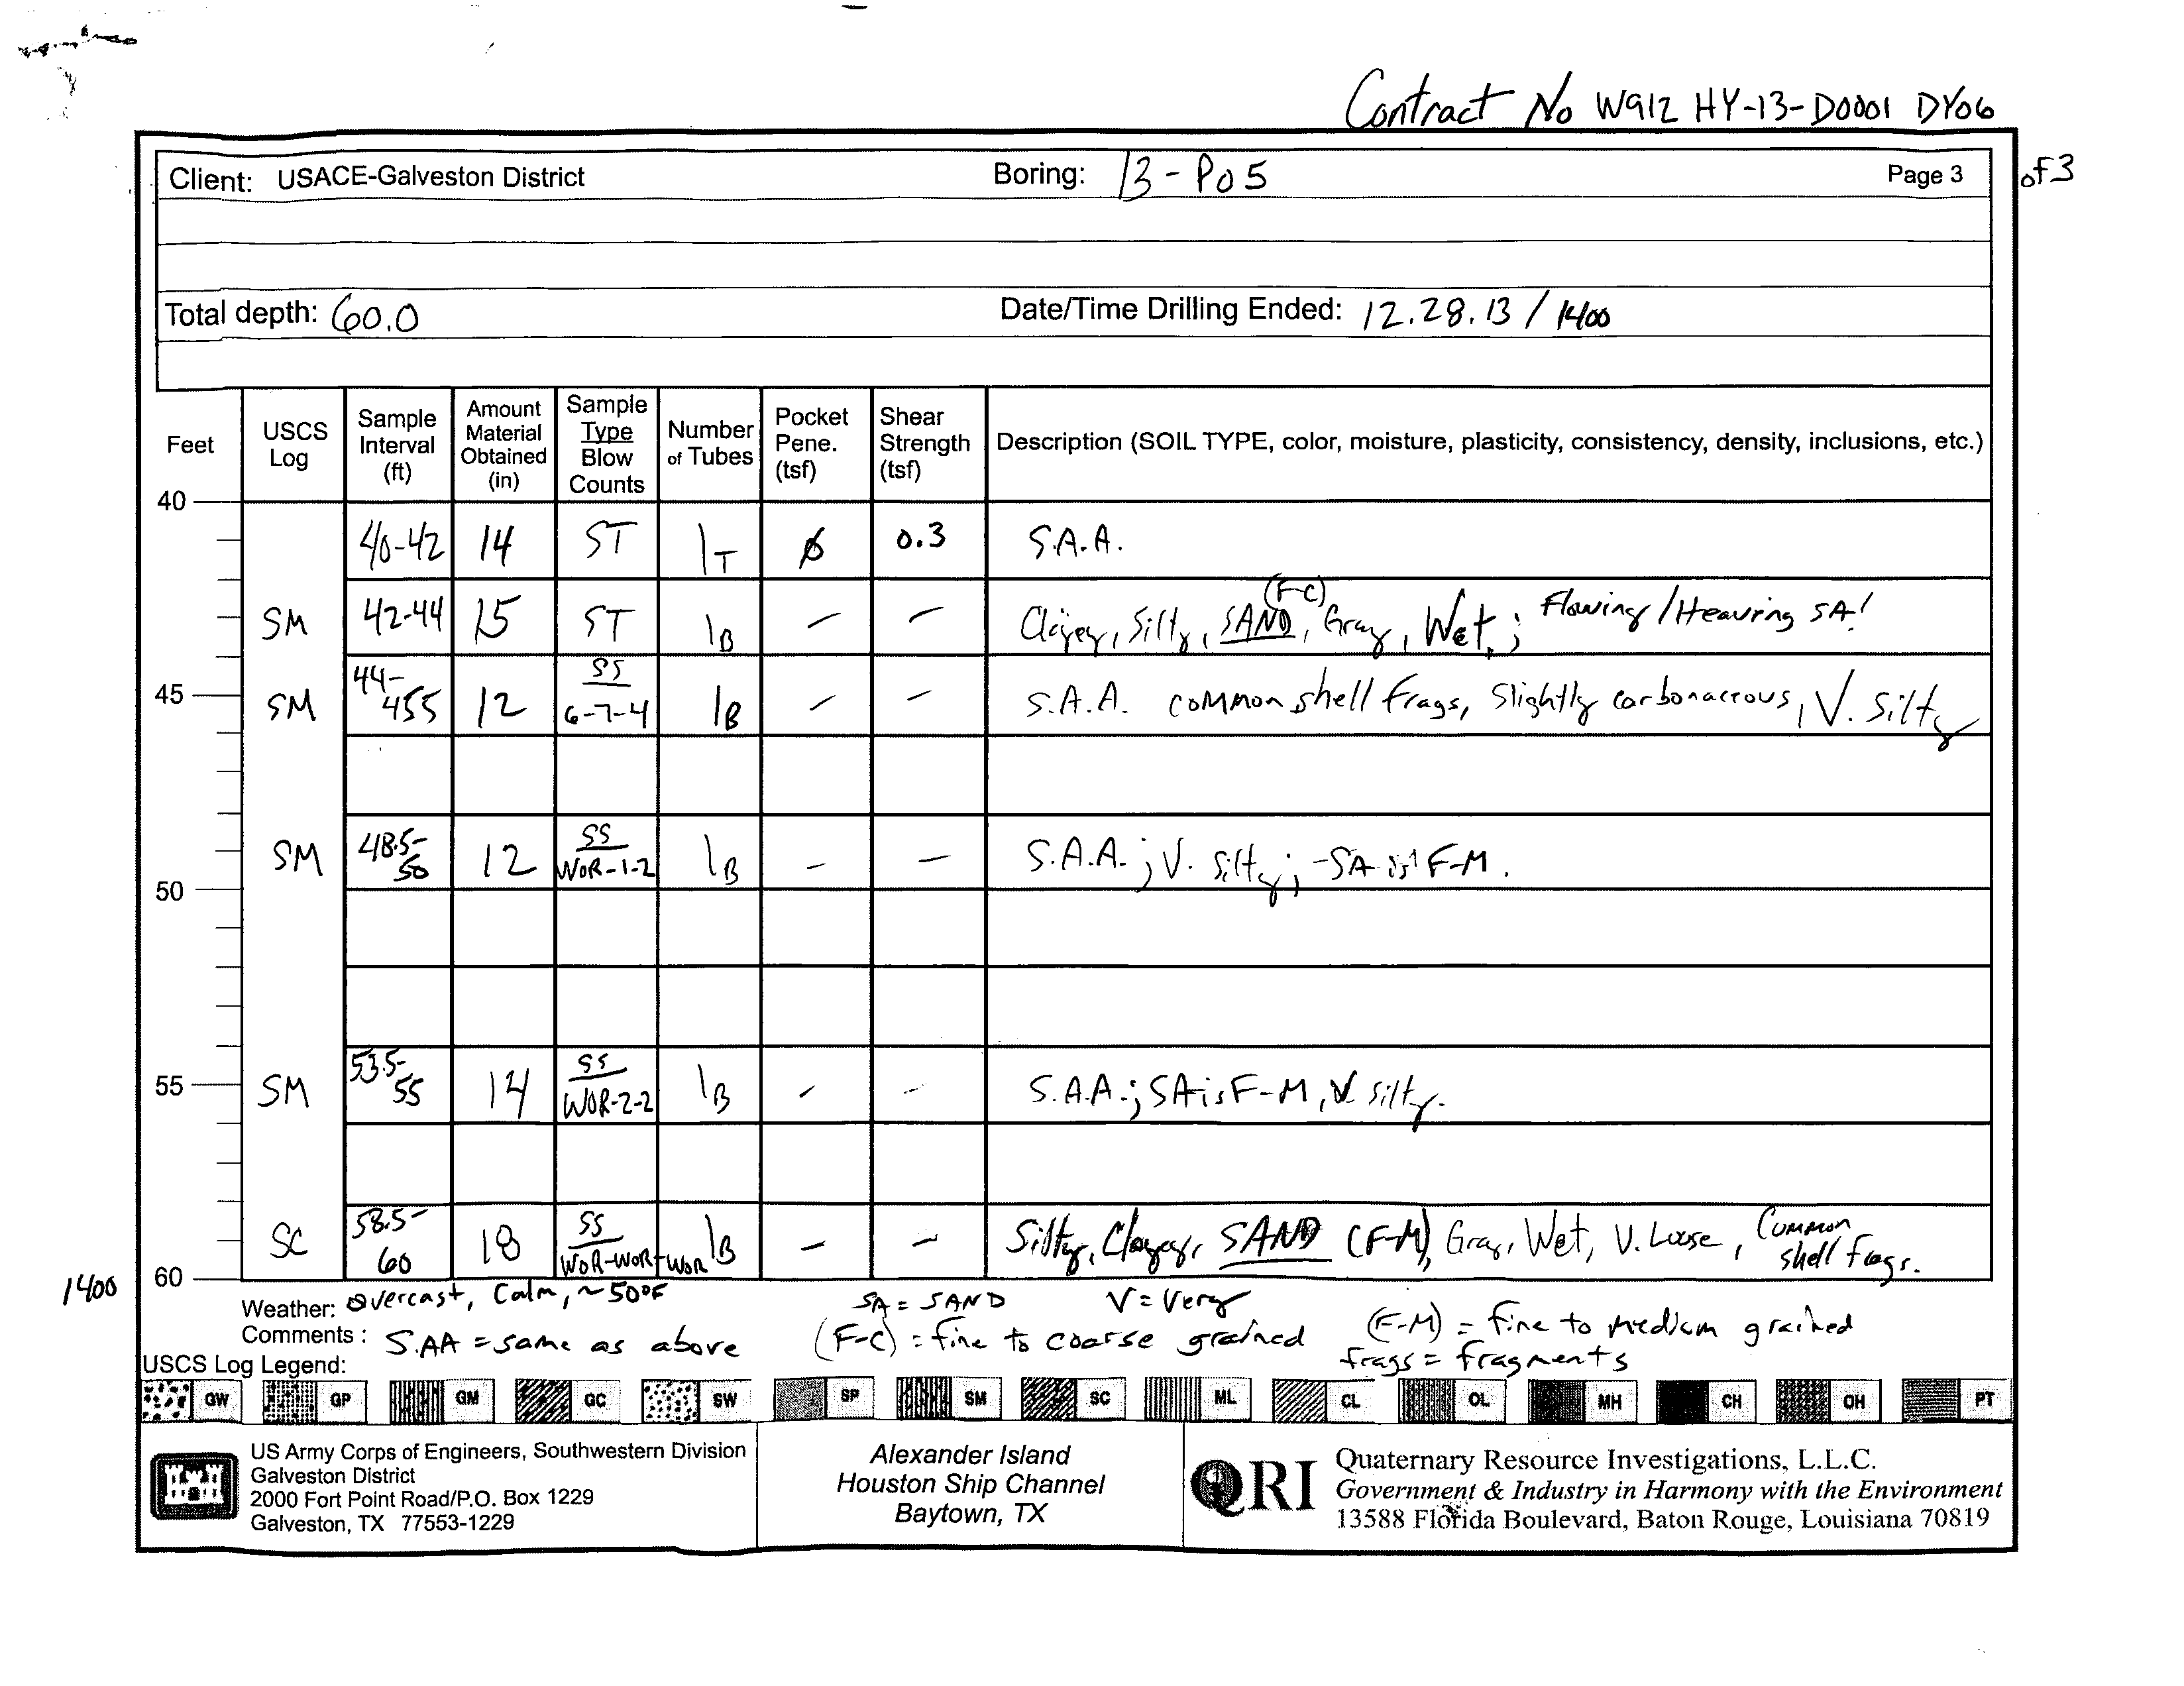 Contract No W912 HY-13-D0001 DY06
Client: USACE-Galveston District Boring: 13-P05 Page 3 of 3
Total depth: 60.0 Date/Time Drilling Ended: 12.28.13 / 1400
Feet USCS Log Sample Interval (ft) Amount Material Obtained (in) Sample Type Blow Counts Number of Tubes Pocket Pene. (tsf) Shear Strength (tsf) Description (SOIL TYPE, color, moisture, plasticity, consistency, density, inclusions, etc.)
40
40-42 14 ST 1T Ø 0.3 S.A.A.
SM 42-44 15 ST 1B – – Clayey, Silty, SAND (F-C), Gray, Wet; Flowing/Heaving SA!
45 SM 44-455 12 SS 6-7-4 1B – – S.A.A. common shell frags, slightly carbonaceous, V. silty
SM 48.5-50 12 SS WOR-1-2 1B – – S.A.A.; V. silty; -SA is F-M.
50
55 SM 53.5-55 14 SS WOR-2-2 1B – – S.A.A.; SA is F-M, V. silty.
SC 58.5-60 18 SS WOR-WOR-WOR 1B – – Silty, Clayey, SAND (F-M), Gray, Wet, V. Loose, Common shell frags.
1400 60
Weather: Overcast, Calm, ~50°F SA = SAND V = Very
Comments: S.AA = same as above (F-C) = fine to coarse grained (F-M) = fine to medium grained
frags = fragments
USCS Log Legend:
GW GP GM GC SW SP SM SC ML CL OL MH CH OH PT
US Army Corps of Engineers, Southwestern Division
Galveston District
2000 Fort Point Road/P.O. Box 1229
Galveston, TX 77553-1229
Alexander Island
Houston Ship Channel
Baytown, TX
QRI
Quaternary Resource Investigations, L.L.C.
Government & Industry in Harmony with the Environment
13588 Florida Boulevard, Baton Rouge, Louisiana 70819